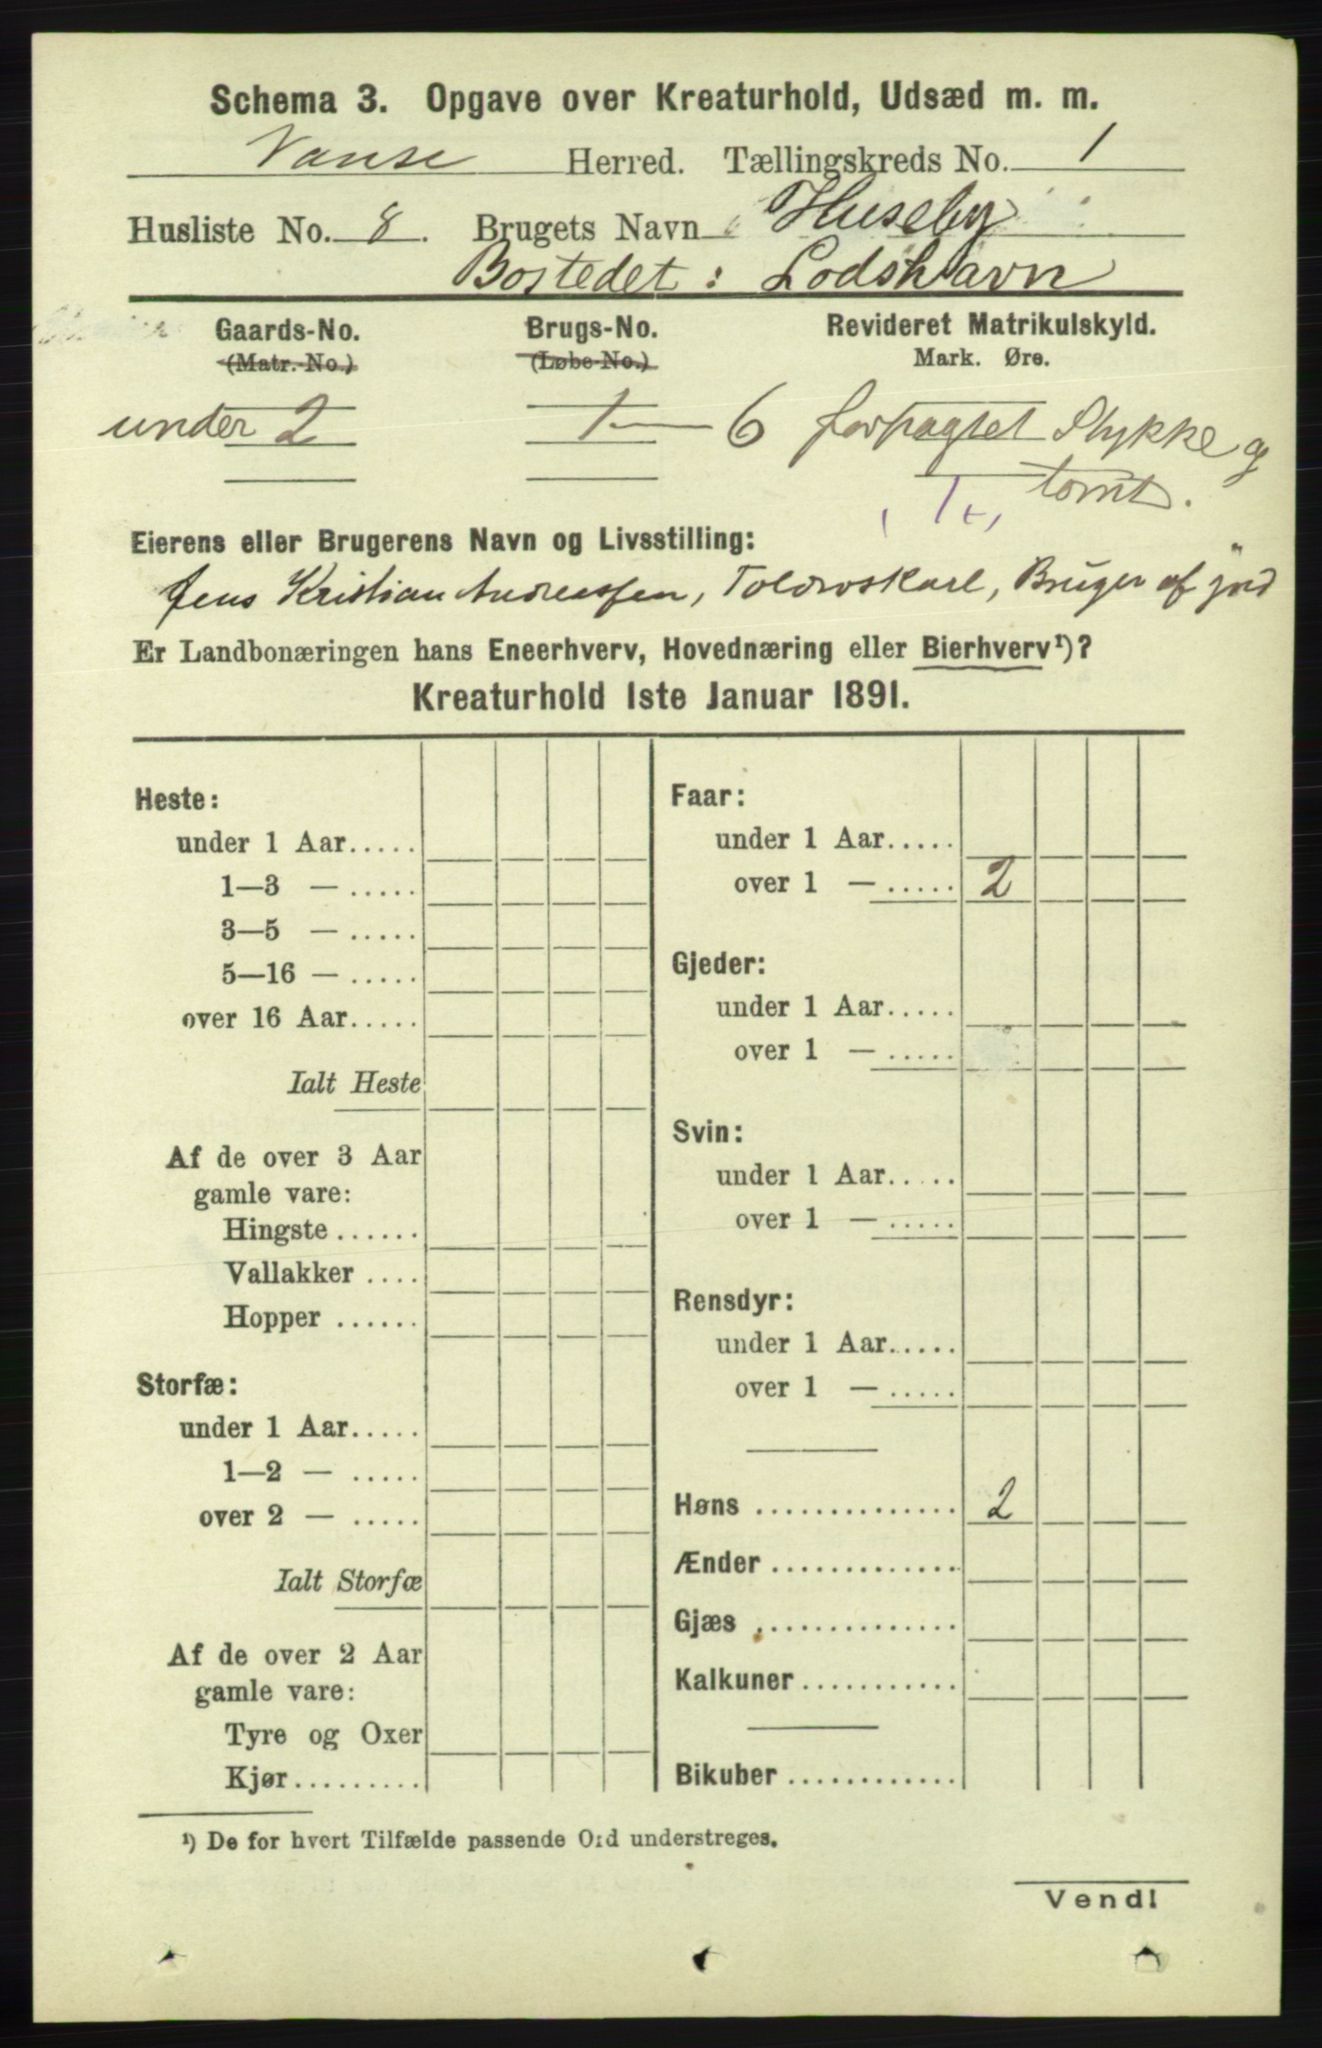 Schema 3. Opgave over Kreaturhold, Udsæd m. m.
Vanse Herred. Tællingskreds No. 1
Husliste No. 8. Brugets Navn Huseby
Bostedet: Lodshavn
Gaards-No. Brugs-No. Revideret Matrikulskyld.
(Matr.-No.) (Løbe-No.) Mark. Øre.
under 2 1 — 6 forpagtet Stykke og
tomt.
Eierens eller Brugerens Navn og Livsstilling:
Jens Kristian Andreassen, Toldroskarl, Bruger af jord
Er Landbonæringen hans Eneerhverv, Hovednæring eller Bierhverv¹)?
Kreaturhold 1ste Januar 1891.
Heste:
under 1 Aar.....
1—3 — .....
3—5 — .....
5—16 — .....
over 16 Aar.....
Ialt Heste
Af de over 3 Aar
gamle vare:
Hingste ......
Vallakker ....
Hopper ......
Storfæ:
under 1 Aar.....
1—2 — .....
over 2 — .....
Ialt Storfæ
Af de over 2 Aar
gamle vare:
Tyre og Oxer
Kjør.........
Faar:
under 1 Aar.....
over 1 — ..... 2
Gjeder:
under 1 Aar.....
over 1 — .....
Svin:
under 1 Aar.....
over 1 — .....
Rensdyr:
under 1 Aar.....
over 1 — .....
Høns .............. 2
Ænder .............
Gjæs ..............
Kalkuner ...........
Bikuber ............
¹) De for hvert Tilfælde passende Ord understreges.
Vend!